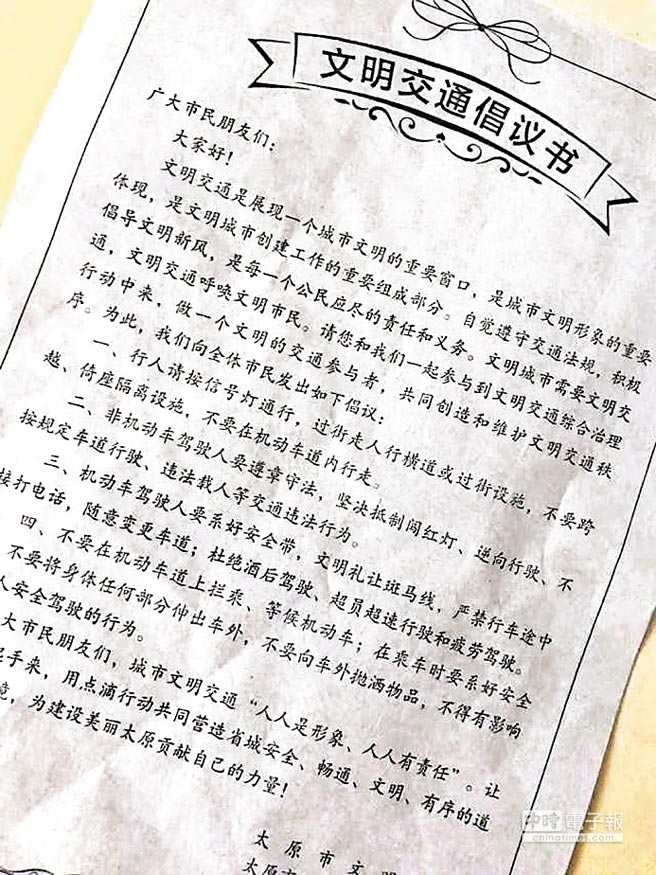 文明交通倡议书
广大市民朋友们：
大家好！
文明交通是展现一个城市文明的重要窗口，是城市文明形象的重要
体现，是文明城市创建工作的重要组成部分。自觉遵守交通法规，积极
倡导文明新风，是每一个公民应尽的责任和义务。文明城市需要文明交
通，文明交通呼唤文明市民。请您和我们一起参与到文明交通综合治理
行动中来，做一个文明的交通参与者，共同创造和维护文明交通秩
序。为此，我们向全体市民发出如下倡议：
一、行人请按信号灯通行，过街走人行横道或过街设施，不要跨
越、倚座隔离设施，不要在机动车道内行走。
二、非机动车驾驶人要遵章守法，坚决抵制闯红灯、逆向行驶、不
按规定车道行驶、违法载人等交通违法行为。
三、机动车驾驶人要系好安全带，文明礼让斑马线，严禁行车途中
接打电话，随意变更车道；杜绝酒后驾驶、超员超速行驶和疲劳驾驶。
四、不要在机动车道上拦乘、等候机动车；在乘车时要系好安全
不要将身体任何部分伸出车外，不要向车外抛洒物品，不得有影响
人安全驾驶的行为。
大市民朋友们，城市文明交通“人人是形象、人人有责任”。让
起手来，用点滴行动共同营造省城安全、畅通、文明、有序的道
境，为建设美丽太原贡献自己的力量！
太原市文明
太原市
中時電子報
chinatimes.com